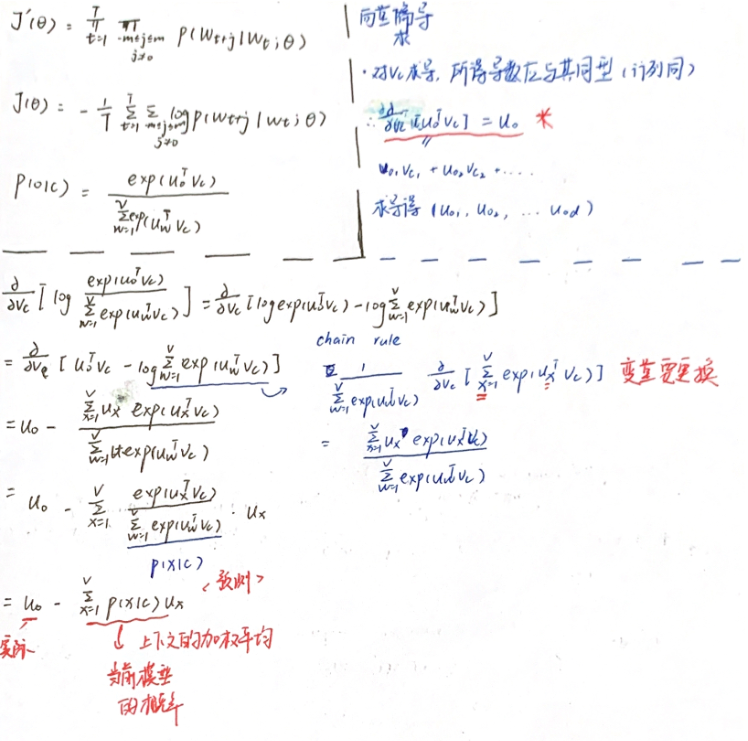 J'(θ) = ∏_{t=1}^{T} ∏_{-m≤j≤m, j≠0} P(W_{t+j}|W_t;θ)
J(θ) = -1/T ∑_{t=1}^{T} ∑_{-m≤j≤m, j≠0} log P(W_{t+j}|W_t;θ)
P(o|c) = exp(u_o^T v_c) / ∑_{w=1}^{V} exp(u_w^T v_c)
向量求导
·对v_c求导,所得导数应与其同型(行列同)
∴ ∂/∂v_c [u_o^T v_c] = u_o *
u_{o1}v_{c1} + u_{o2}v_{c2} + ....
求导得 (u_{o1}, u_{o2}, ... u_{od})
∂/∂v_c [log exp(u_o^T v_c) / ∑_{w=1}^{V} exp(u_w^T v_c)] = ∂/∂v_c [log exp(u_o^T v_c) - log ∑_{w=1}^{V} exp(u_w^T v_c)]
= ∂/∂v_c [u_o^T v_c - log ∑_{w=1}^{V} exp(u_w^T v_c)]
chain rule
1 / ∑_{w=1}^{V} exp(u_w^T v_c) ∂/∂v_c [∑_{x=1}^{V} exp(u_x^T v_c)] 变量要更换
= ∑_{x=1}^{V} u_x exp(u_x^T v_c) / ∑_{w=1}^{V} exp(u_w^T v_c)
= u_o - ∑_{x=1}^{V} u_x exp(u_x^T v_c) / ∑_{w=1}^{V} exp(u_w^T v_c)
= u_o - ∑_{x=1}^{V} exp(u_x^T v_c) / ∑_{w=1}^{V} exp(u_w^T v_c) · u_x
P(x|c)
= u_o - ∑_{x=1}^{V} P(x|c) u_x <预测>
实际
↓ 上下文的加权平均
当前模型
的概率